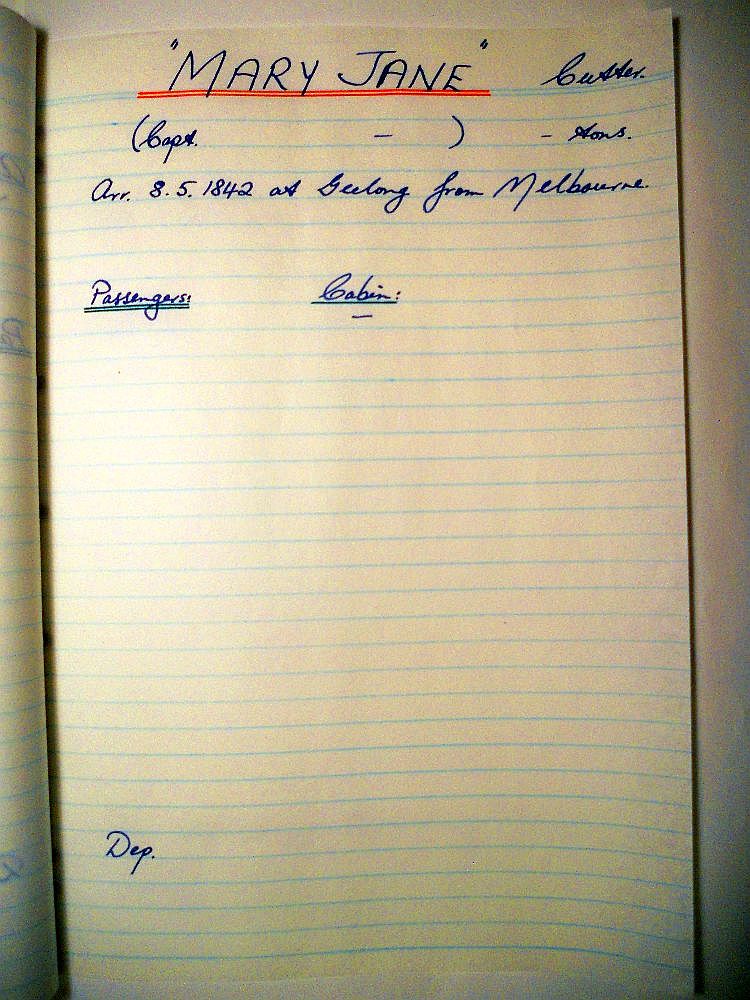 "MARY JANE" Cutter.
(Capt. - ) - tons.
Arr. 8.5.1842 at Geelong from Melbourne.
Passengers: Cabin:
-
Dep.